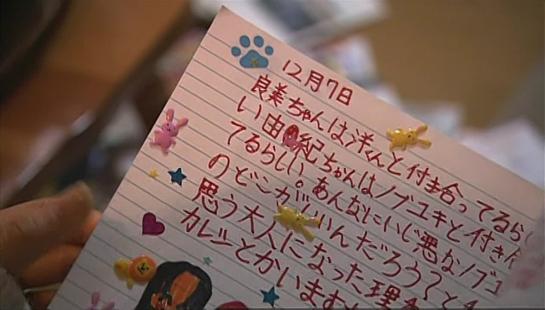 12月7日
良美ちゃんは洋くんと付き合ってるらし
い由紀ちゃんはノブユキと付き
てるらしい。あんなにいじ悪なノブユ
のどこがいいんだろう?と
思う大人になった理
カレシとかいます